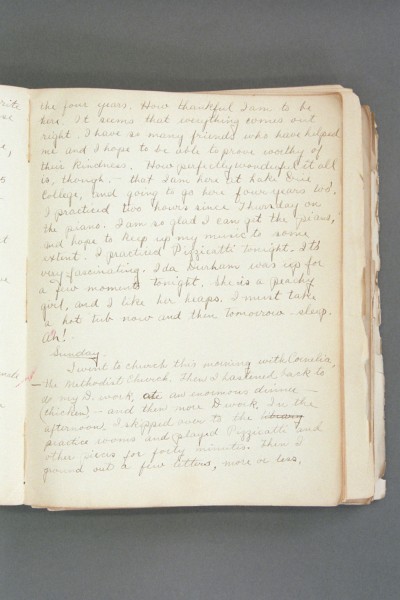 the four years. How thankful I am to be
here. It seems that everything comes out
right. I have so many friends who have helped
me and I hope to be able to prove worthy of
their kindness. How perfectly wonderful it all
is, though, — that I am here at Lake Erie
College, and going to go here four years too.
I practiced two hours since Thursday on
the piano. I am so glad I can get the piano,
and hope to keep up my music to some
extent. I practiced Pizzicatti tonight. It's
very fascinating. Ida Durham was up for
a few moments tonight. She is a peachy
girl, and I like her heaps. I must take
a hot tub now and then tomorrow - sleep.
Ah!
Sunday
I went to church this morning with Cornelia,
the Methodist Church. Then I hastened back to
do my D. work, ate an enormous dinner —
(chicken) — and then more D work. In the
afternoon I skipped over to the library
practice rooms and played Pizzicatti and
other pieces for forty minutes. Then I
ground out a few letters, more or less.